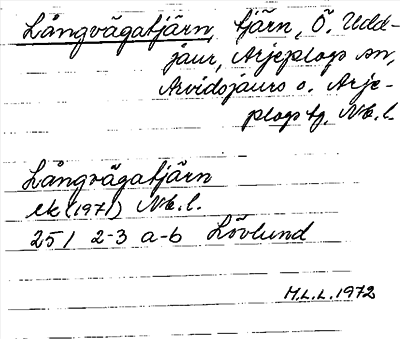 Långvägatjärn, tjärn, Ö. Udd-
jaur, Arjeplogs sn,
Arvidsjaurs o. Arje-
plogs tg, Nb. l.
Långvägatjärn
ek (1971) Nb. l.
251 2-3 a-b Lövlund
M.L.L. 1972